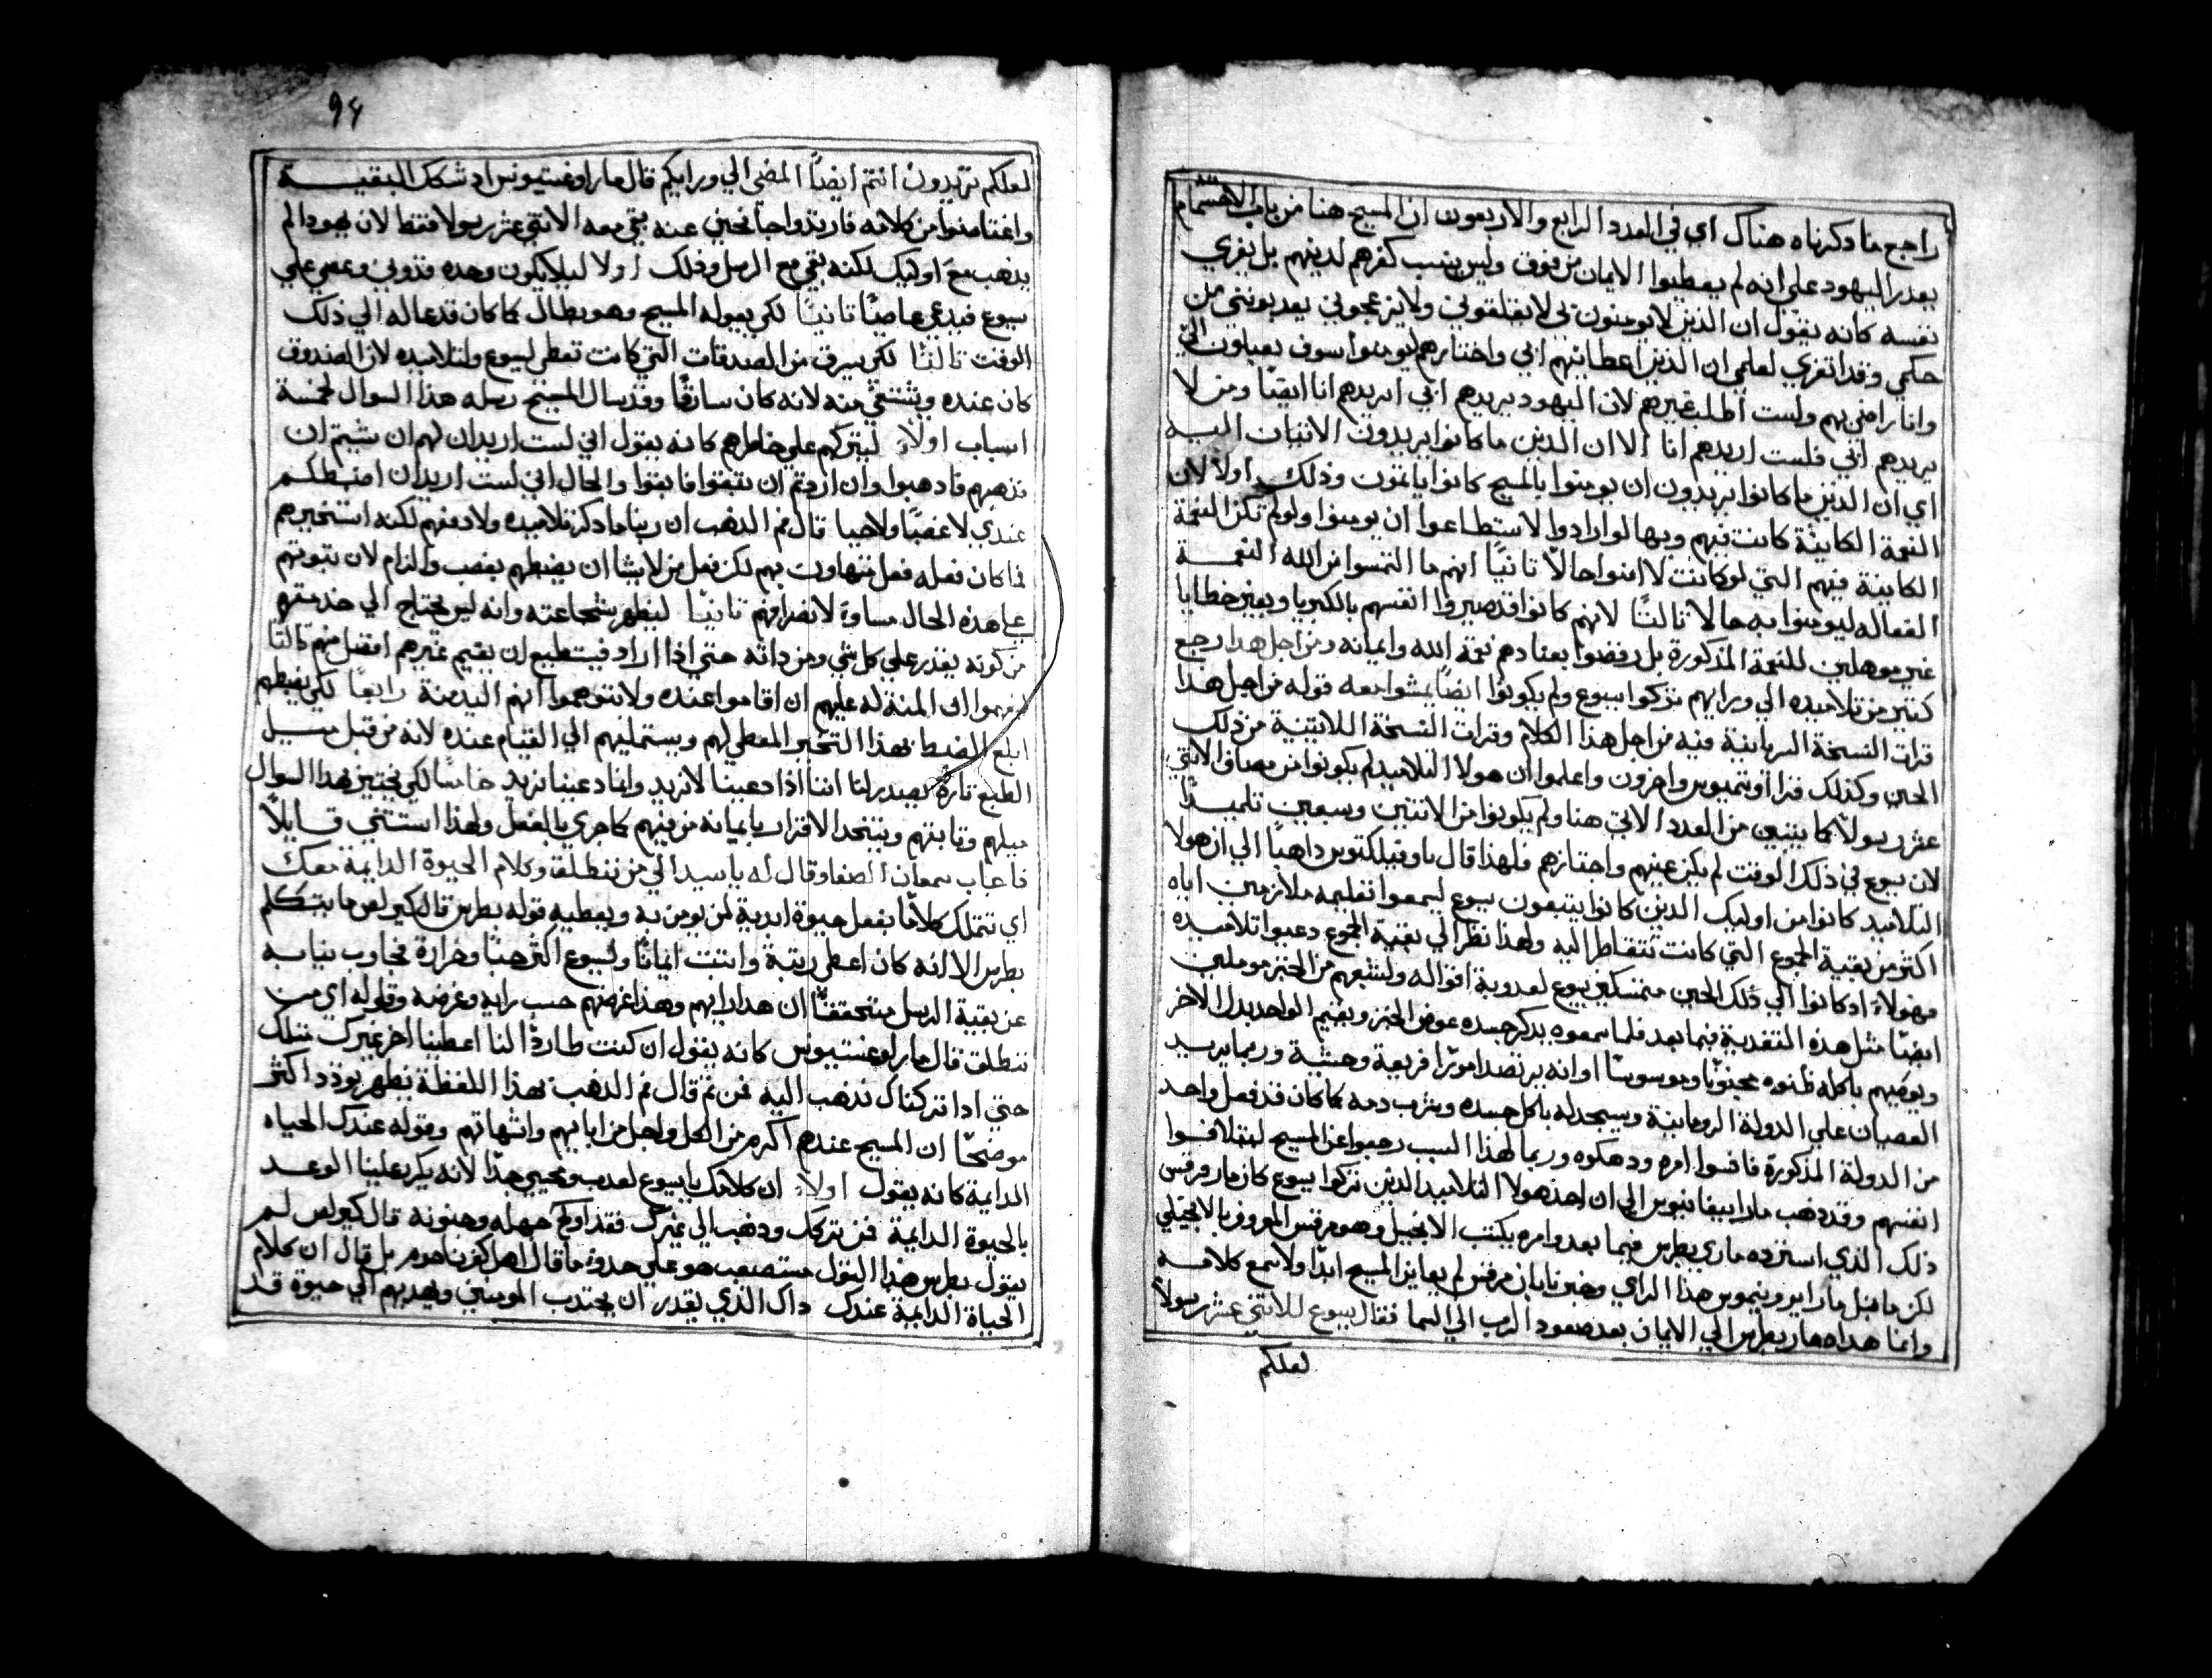 راجع ما ذكرناه هناك اي في العدد الرابع والاربعون ان المسيح هنا من باب الاهتمام
يعدر اليهود على انه لم يعطيوا الايمان من فوق وليس ينسب كفرهم لديهم بل يعزي
نفسه كانه يقول ان الذين لا يومنون بي لا يقلقوني ولا يزعجوني يعد بونني من
حكمي وقد اتعزي لعلمي ان الذين اعطانيهم ابي واختارهم ليومنوا سوف يقبلون اليّ
وانا راضي بهم ولست اطلب غيرهم لان اليهود يريدهم ابي اريدهم انا ايضًا ومن لا
يريدهم ابي فلست اريدهم انا الا ان الذين ما كانوا يريدون الاتيان اليه
اي ان الذين ما كانوا يريدون ان يومنوا بالمسيح كانوا ياتمون وذلك اولًا لان
النعمة الكافية كانت فيهم وبها لو ارادوا لاستطاعوا ان يومنوا ولو لم تكن النعمة
الكافية فيهم التي لو كانت لامنوا حالًا ثانيًا انهم ما التمسوا من الله النعمة
الفعاله ليومنوا به حالا ثالثًا لانهم كانوا قد صيروا انفسهم بالكبريا وبغير خطايا
غير موهلين للنعمة المذكورة بل رفضوا بعنادهم نعمة الله وايمانه ومن اجل هدا رجع
كثير من تلاميذه الي ورايهم تركوا يسوع ولم يكونوا ايضًا يمشوا معه قوله من اجل هذا
قرات النسخة السريانية فيه من اجل هذا الكلام وقرات النسخة اللاتينية من ذلك
الحين وكذلك قرا اوتيميوس واخرون واعلموا ان هولا التلاميد لم يكونوا من مصاف الاثني
عشر رسولًا كما يتبين من العدد الاتي هنا ولم يكونوا من الاثنين وسبعين تلميذًا
لان يسوع في ذلك الوقت لم يكن عينهم واختارهم فلهذا قال ثاوفيلكتوس داهبًا الي ان هولا
التلاميد كانوا من اوليك الذين كانوا يتبعون يسوع ليسمعوا تعليمه ملازمين اياه
اكثر من بقية الجموع التي كانت تتقاطر اليه ولهذا نظرًا الي بقية الجموع دعيوا تلاميذه
فهولاء اد كانوا الي ذلك الحين متمسكين بيسوع لعدوبة اقواله ولشبعهم من الخبز موملين
ايضًا مثل هذه التغدية فيما بعد فلما سمعوه يذكر جسده عوض الخبز ويقيم الواحد بدل الاخر
ويوصيهم باكله ظنوه مجنونًا وموسوسًا او انه يرتصد امورًا فريعة وحشية وربما يريد
العصيان علي الدولة الرومانية ويستجد له باكل جسده وبشرب دمه كما كان قد فعل واحد
من الدولة المذكورة فافسوا امره ودهكوه وربما لهذا السبب رجعوا عن المسيح ليتلافوا
انفسهم وقد دهب مار ابيفانيوس الي ان احد هولا التلاميد الذين تركوا يسوع كان مار مرقس
ذلك الذي استرده ماري بطرس فيما بعد وامره بكتب الانجيل وهو مرقس المعروف بالانجيلي
لكن ما قبل مار ايرونيموس هذا الراي وخبرنا بان مرقس لم يعاين المسيح ابدًا ولا سمع كلامه
وانما هداه مار بطرس الي الايمان بعد صعود الرب الي السما فقال يسوع للاثني عشر رسولًا
لعلكم
94
لعلكم تريدون انتم ايضًا المضي الي ورايكم قال مار اوغستينوس اد شكك البقية
واغتاضوا من كلامه فارتدوا جانحين عنه بقي معه الاثني عشر رسولا فقط لان يهودا لم
يدهب مع اوليك لكنه بقي مع الرسل وذلك اولا ليلا يكون وحده قد وني وعصي علي
يسوع فيدعي عاصيًا ثانيًا لكي يعوله المسيح وهو بطال كما كان قد عاله الي ذلك
الوقت ثالثًا لكي يسرق من الصدقات التي كانت تعطي ليسوع ولتلاميده لان الصندوق
كان عنده ويشتفي منه لانه كان سارقًا وقد سال المسيح رسله هذا السوال لخمسة
اسباب اولاً ليتركهم علي خاطرهم كانه يقول اني لست اريد ان لهم ان شيتم ان
تذهبوا فادهبوا وان اردتم ان تبقوا فابقوا والحال اني لست اريد ان اضبطكم
عندي لا غصبًا ولا حيا قال فم الذهب ان ربنا ما دكر تلاميده ولا دفعهم لكنه استخبرهم
فما كان فعله فعل متهاون بهم لكن فعل من لا يشا ان يضبطهم بغصب والزام لان ثبوتهم
علي هذه الحال مساوٍ لانصرافهم ثانيًا ليظهر شجاعته وانه ليس يحتاج الي خدمتهم
من كونه يقدر علي كل شي ومن داته حتي اذا اراد فيستطيع ان يقيم غيرهم افضل منهم ثالثًا
ليفهموا ان المنة له عليهم ان اقاموا عنده ولا يتوهموا انهم اليه منة رابعًا لكي يضبطهم
ابلغ الضبط بهذا التخيير المعطي لهم ويستمليهم الي القيام عنده لانه من قبل ميل
الطبع تارةً يصدر لنا اننا اذا دعينا لا نريد وان ما دعينا نريد خامسًا لكي يختبر بهذا السوال
ميلهم وثباتهم ويتخد الاقرار بايمانه من فيهم كما جري بالفعل ولهذا استثني قايلًا
فاجاب سمعان الصفا وقال له يا سيد الي من ننطلق وكلام الحيوة الدايمة معك
اي تتملك كلامًا يفعل حيوة ابدية لمن يومن به ويعطيه قوله بطرس قال كيرلس ما يتكلم
بطرس الا لانه كان اعطي رتبة واثبت ايمانًا وليسوع اكثر حبًا وحرارة فجاوب نيابه
عن بقية الرسل متحققًا ان هدا رايهم وهذا غرضهم حسب رايه وغرضه وقوله اي من
ننطلق قال مار اوغستينوس كانه يقول ان كنت طاردًا لنا اعطينا اخر غيرك مثلك
حتي ادا تركناك نذهب اليه فمن ثم قال فم الدهب بهذا اللفظة يظهر بودد اكثر
موضحًا ان المسيح عندهم اكرم من الكل واجل من اباييهم وامهاتهم وقوله عندك الحياه
الدايمة كانه يقول اولاً ان كلامك يا يسوع لعدب ومحيي جدًا لانه يكرر علينا الوعد
بالحيوة الدايمة فمن تركك ودهب الي غيرك فقد اوضح جهله وجنونه قال كيرلس لم
يقول بطرس هذا القول مستصعب هو علي حدو ما قال اهل كفرناحوم بل قال ان كلام
الحياة الدايمة عندك داك الذي يقدر ان يجتدب المومنين ويهديهم الي حيوة قد